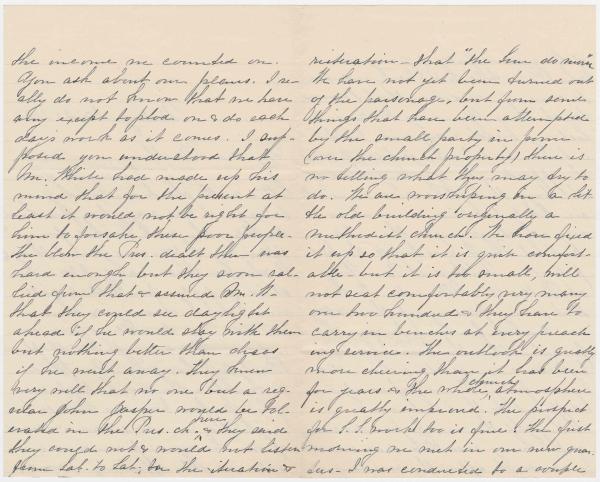 the income we counted on.
You ask about our plans. I re-
ally do not know that we have
any except to plod on & do each
day's work as it comes. I sup-
posed you understood that
Mr. White had made up his
mind that for the present at
least it would not be right for
him to forsake these poor people-
the blow the Pres. dealt them was
hard enough but they soon ral-
lied from that & assured Mr. W-
that they could see daylight
ahead if he would stay with them
but nothing better than chaos
if he went away. They knew
very well that no one but a reg-
ular John Jasper would be tol-
erated in the Pres. ch. here & they said
they could not & would not listen
from Sab. to Sab. to the iteration &
reiteration - that "the Sun do move"
We have not yet been turned out
of the parsonage, but from some
things that have been attempted
by the small party in power
(over the church property) there is
no telling what they may try to
do. We are worshiping in a lit-
tle old building originally a
methodist church. We have fixed
it up so that it is quite comfort-
able - but it is too small, will
not seat comfortably very many
over two hundred & they have to
carry in benches at every preach
ing service. The outlook is greatly
more cheering than it has been
for years & the whole church atmosphere
is greatly improved. The prospect
for S.S. work too is fine. The first
morning we met in our new quar-
ters - I was conducted to a couple